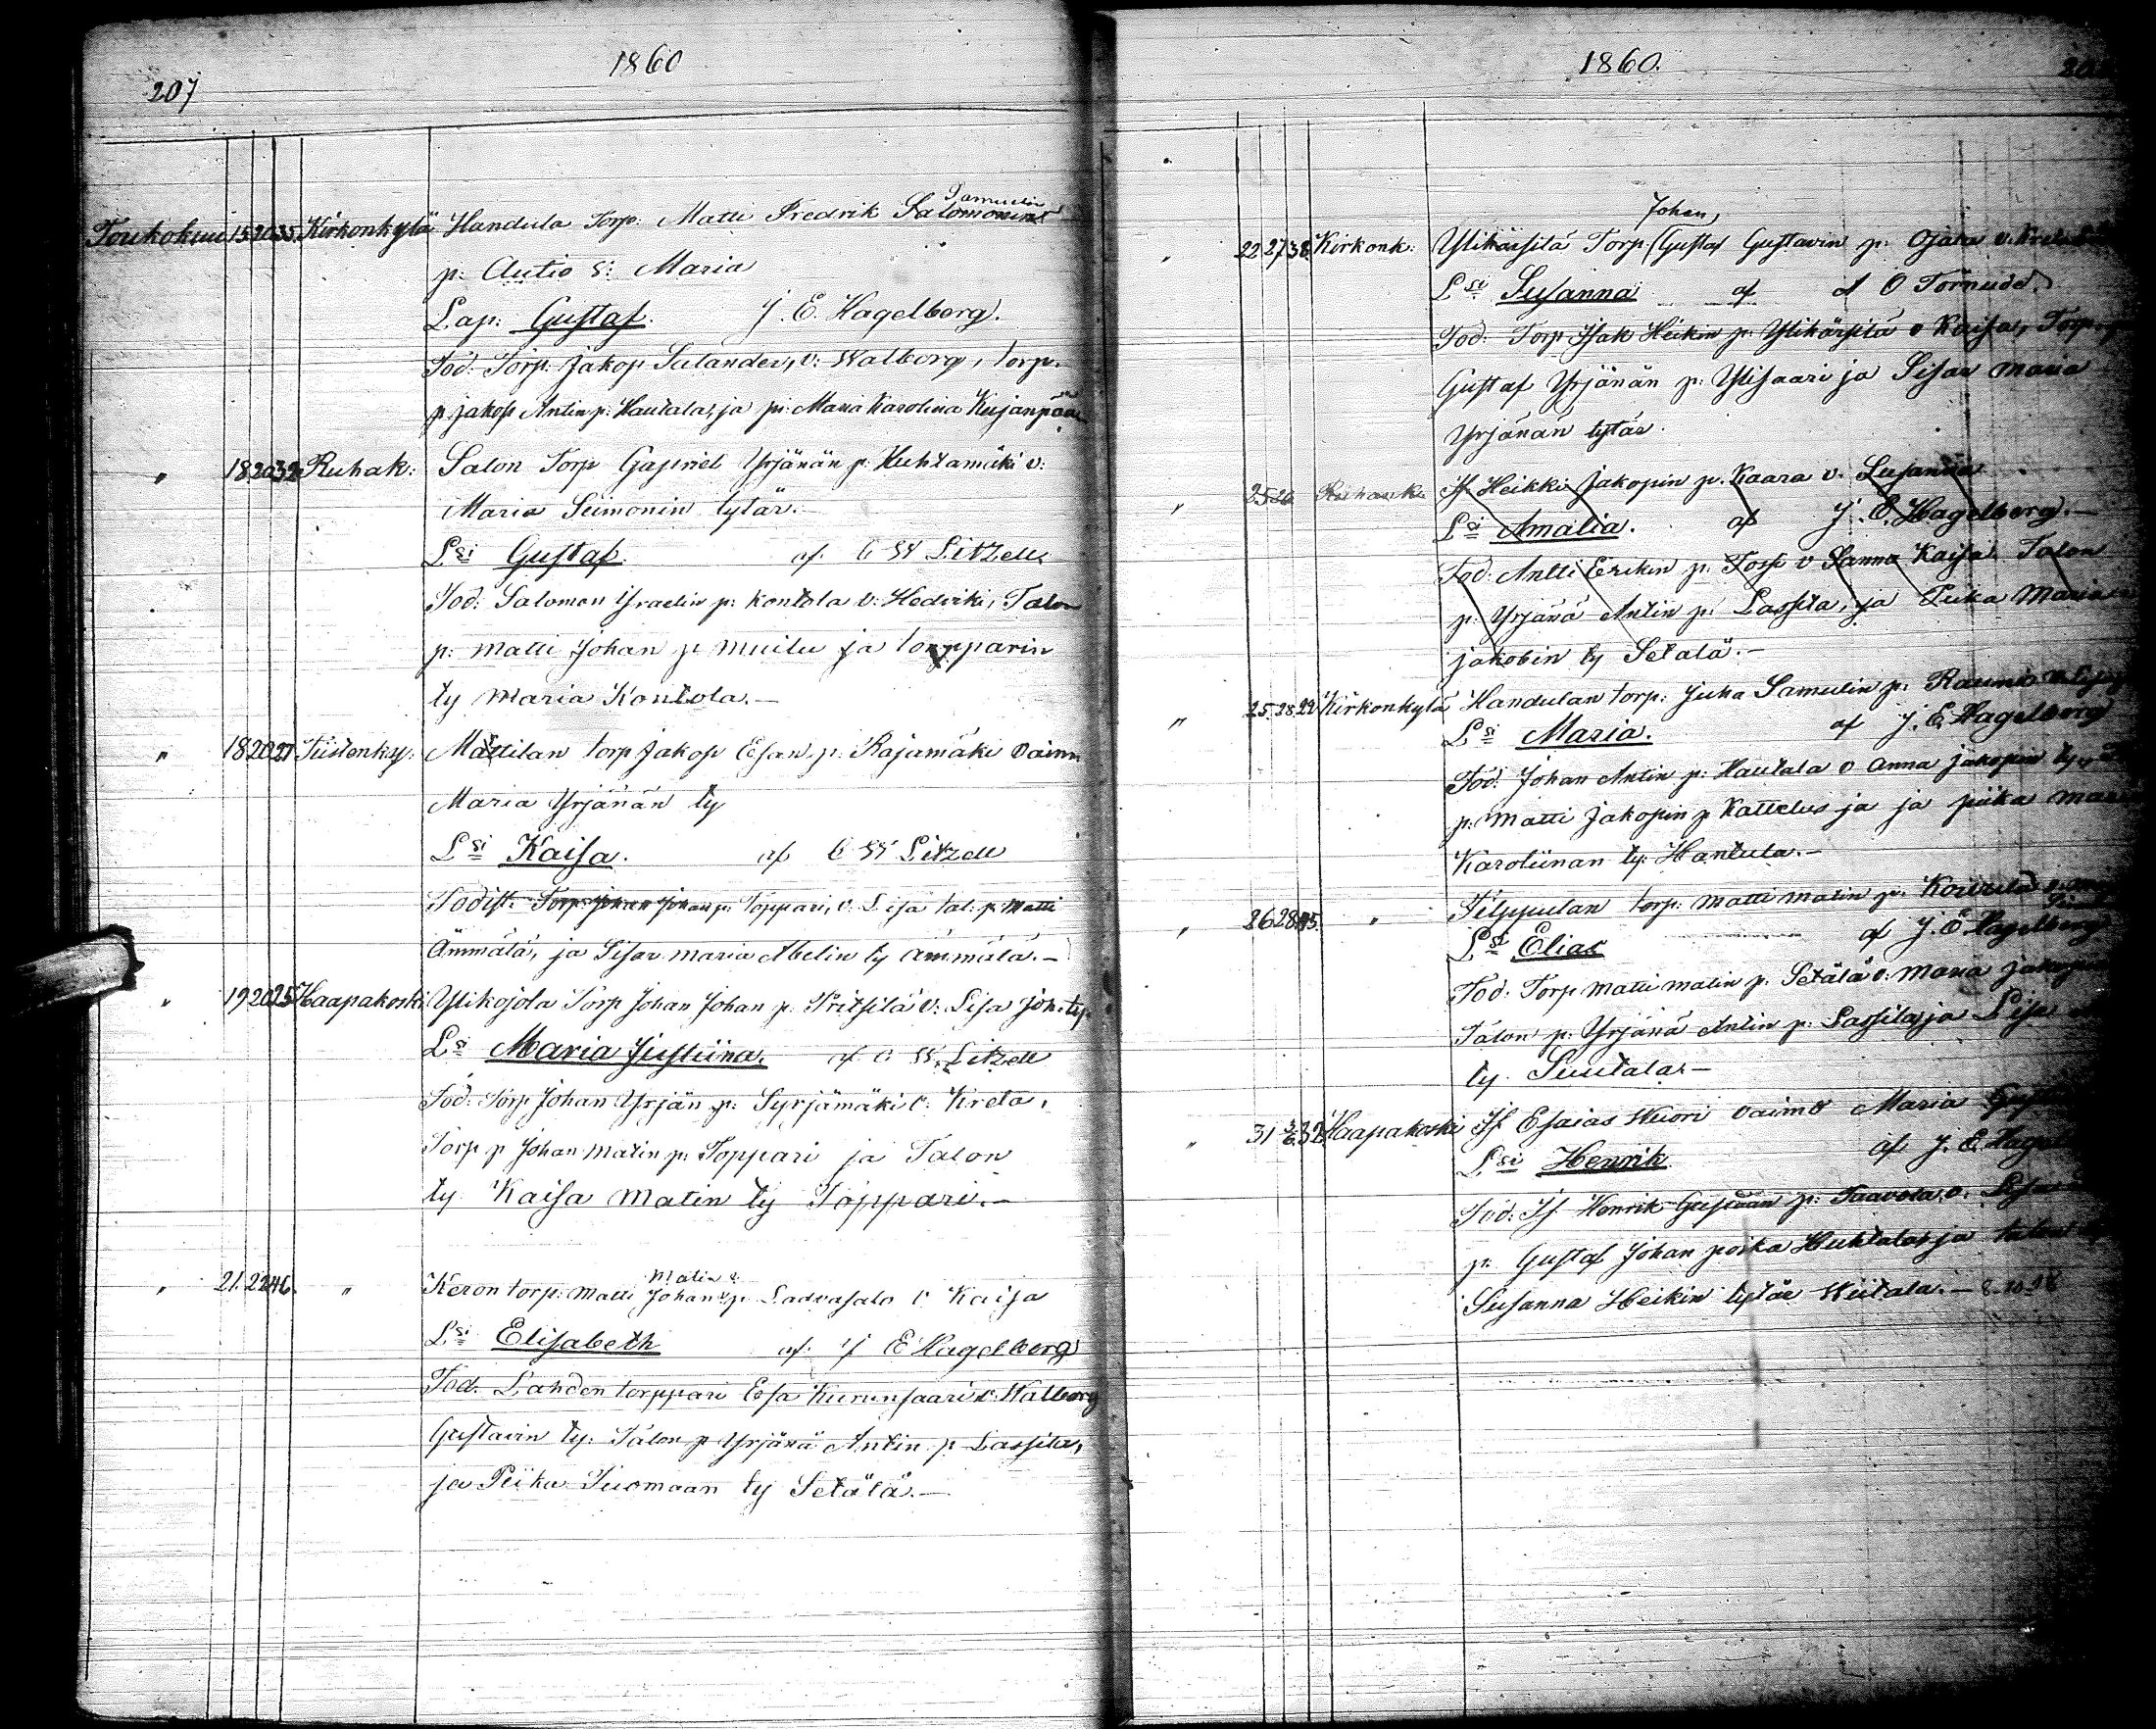 1860
207
Toukokuu 15 20 35. Kirkonkylä Handula Torp: Matti Fredrik Salomonin Samuelin
p: Autio v: Maria
Lap: Gustaf. J. E. Hagelberg.
Tod: Torp: Jakop Sulander, v: Walborg, torp.
p: jakop Antin p: Hautala, ja pi: Maria Karolina Kujanpää
" 18 20 32 Ruhak: Salon Torp Gabriel Yrjänän p: Huhtamäki v:
Maria Siimonin tytär.
Lsi Gustaf. af C W Litzell
Tod: Salomon Israelin p: Kontola v: Hedviki, Talon
p: matti Johan p muilu ja torpparin
ty Maria Kontola.-
" 18 20 27 Tiistenky: Mattilan torp Jakop Esan p: Rajamäki vaimo
Maria Yrjänän ty
Lsi Kaisa. af C W Litzell
Todist: Torp: Johan Johan p: Toppari, v: Lisa tal: p: Matti
Ämmälä, ja Sisar maria Abelin ty ämmälä.-
" 19 20 25 Haapakoski Ylikojola Torp Johan Johan p: Pritsilä v: Lisa Joh: ty.
Lsi Maria Justiina. af C W. Litzell
Tod: Torp Johan Yrjän p: Syrjämäki v: Kreta,
Torp p Johan Matin p: Toppari ja Talon
ty Kaisa Matin ty Toppari.-
" 21. 22 46. " Keron torp: Matti Johan p: Matin Ladvasalo v Kaisa
Lsi Elisabeth af J E Hagelberg
Tod. Lahden torppari Esa Kurunsaari v: Walborg
Gustavin ty: Talon p Yrjänä Antin p Lassila,
ja Piika Tuomaan ty Setälä.-
1860.
Johan,
" 22 27 38 Kirkonk: Ylikärsilä Torp (Gustaf Gustavin p: Ojala v.
Lsi Susanna af O Törnudd.
Tod: Torp Isak Heikin p: Ylikärsilä v Kaisa, Torp.
Gustaf Yrjänän p: Ylisaari ja Sisar Maria
Yrjänän tytär.
" 25 26 Ruhank. If Heikki Jakopin p: Kaara v. Susanna
Lsi Amalia. af J. E. Hagelberg.-
Tod: Antti Erikin p: Tosse v Sanna Kaisa Talon
p: Yrjänä Antin p: Lassila, ja Piika Maria
jakobin ty Setälä.-
" 25. 28 22 Kirkonkylä Handulan torp: Juha Samulin p: Raunio
Lsi Maria. af J. E Hagelberg
Tod: Johan Antin p: Hautala v Anna jakopin ty
p: Matti Jakopin p Kattelus ja ja piika
Karoliinan ty: Hantula.-
" 26 28 45. " Filppulan torp: matti matin p:
Lsi Elias af J. E Hagelberg
Tod: Torp matti matin p: Setälä v: Maria
Talon p: Yrjänä Antin p: Lassila, ja Lisa
ty. Suutala.-
" 31 3/6 32 Haapakoski If Esaias Wuori vaimo Maria
Lsi Henrik af J. E.
Tod: If Henrik Gustaan p: Taavola v.
p: Gustaf Johan poika Huhtala, ja
Susanna Heikin tytär Wiitala.- 8-10-98